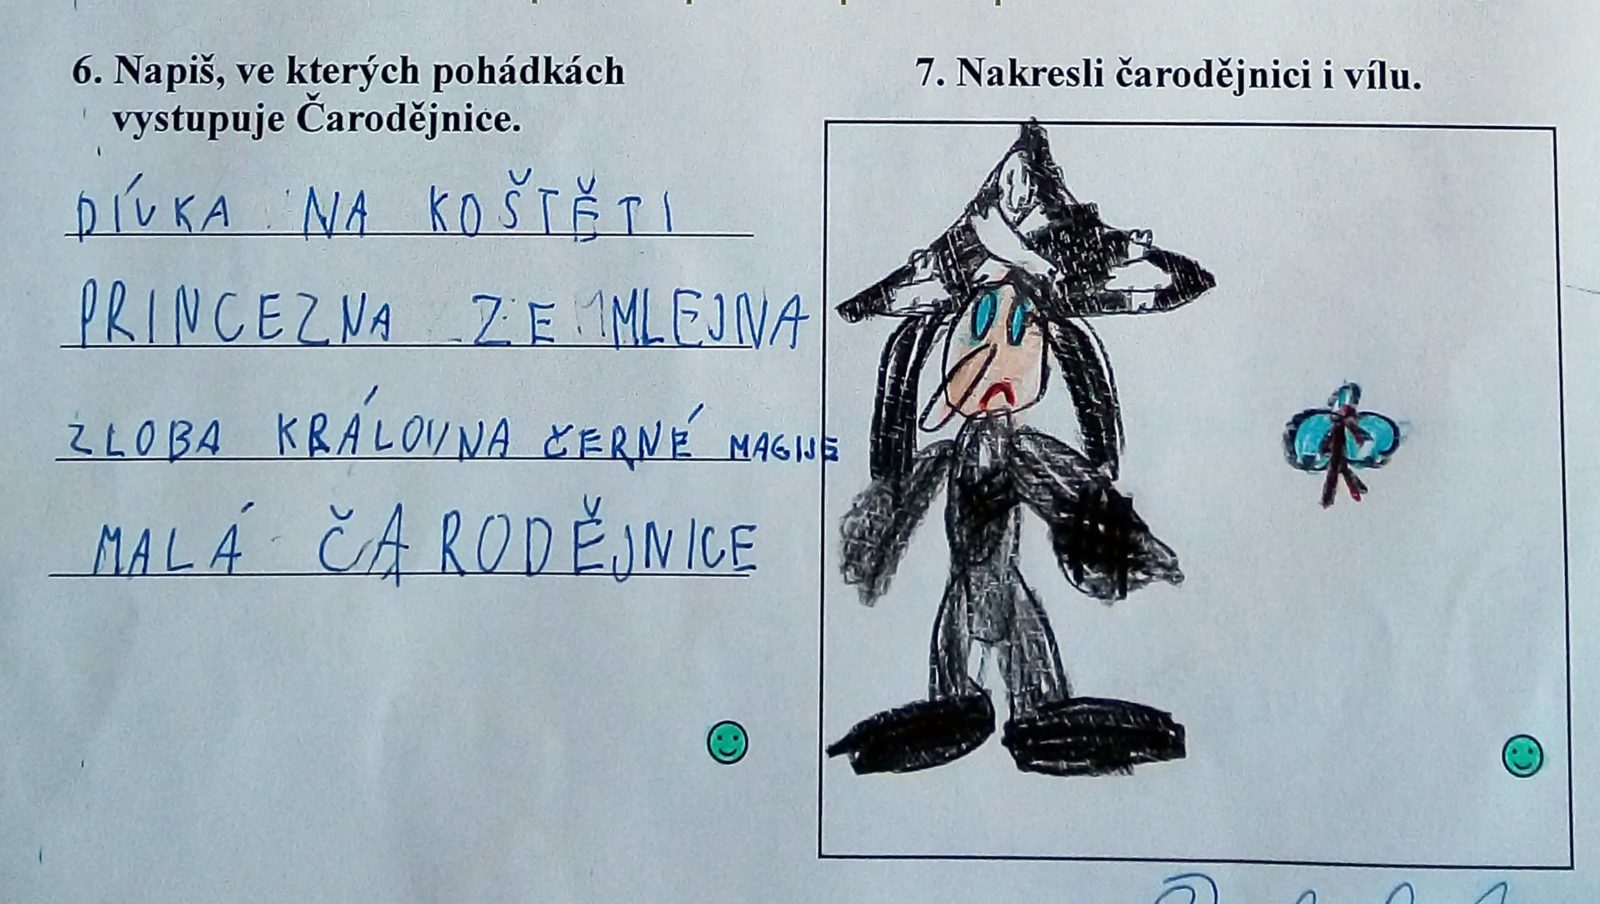 6. Napiš, ve kterých pohádkách
vystupuje Čarodějnice.
DÍVKA NA KOŠTĚTI
PRINCEZNA ZE MLEJNA
ZLOBA KRÁLOVNA ČERNÉ MAGIJE
MALÁ ČARODĚJNICE
7. Nakresli čarodějnici i vílu.